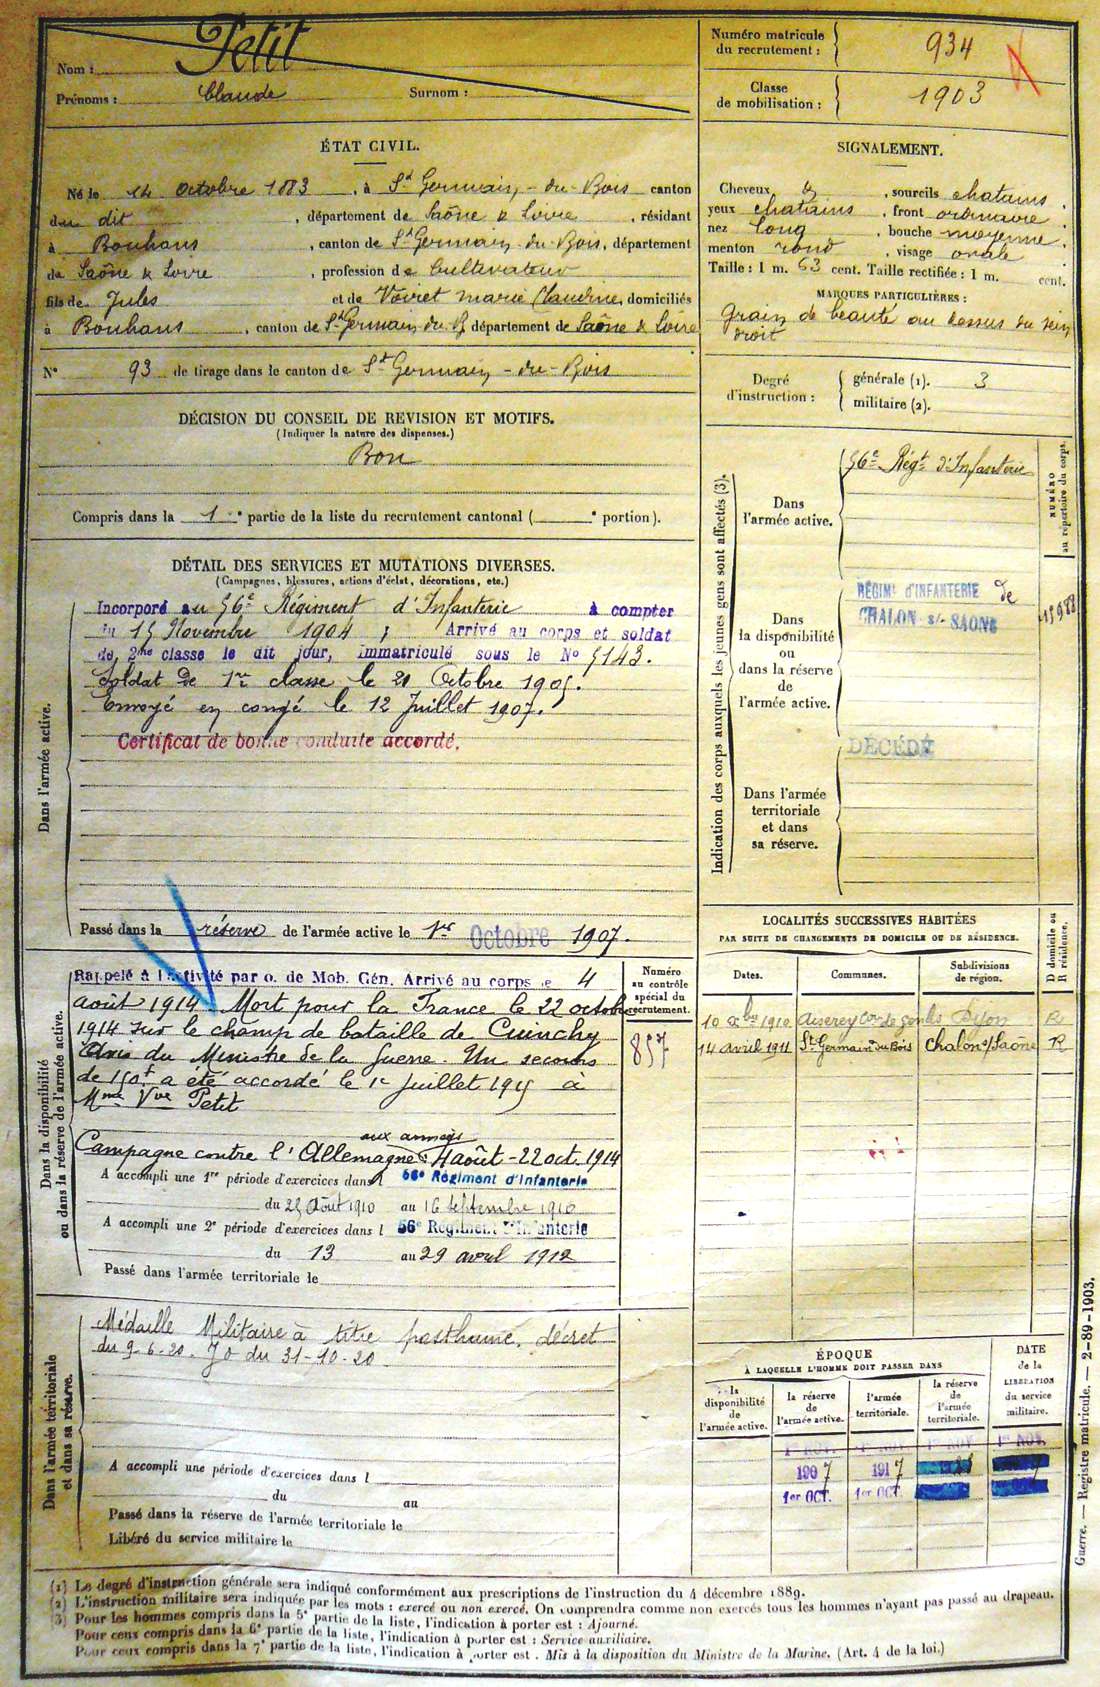 Nom : Petit
Prénoms : Claude Surnom :
Numéro matricule du recrutement : 934
Classe de mobilisation : 1903
ÉTAT CIVIL.
Né le 14 octobre 1883, à St Germain-du-Bois canton
du dit, département de Saône & Loire, résidant
à Bouhans, canton de St Germain-du-Bois, département
de Saône & Loire, profession de Cultivateur
fils de Jules et de Voiret marie Claudine, domiciliés
à Bouhans, canton de St Germain du B, département de Saône & Loire
N° 93 de tirage dans le canton de St Germain-du-Bois
SIGNALEMENT.
Cheveux &, sourcils chatains,
yeux chatains, front ordinaire
nez long, bouche moyenne,
menton rond, visage ovale
Taille : 1 m. 63 cent. Taille rectifiée : 1 m. cent.
MARQUES PARTICULIÈRES :
Grain de beauté au dessus du sein
droit
Degré d'instruction :
générale (1). 3
militaire (2).
DÉCISION DU CONSEIL DE REVISION ET MOTIFS.
(Indiquer la nature des dispenses.)
Bon
Compris dans la 1e partie de la liste du recrutement cantonal ( e portion).
DÉTAIL DES SERVICES ET MUTATIONS DIVERSES.
(Campagnes, blessures, actions d'éclat, décorations, etc.)
Dans l'armée active.
Incorporé au 56e Régiment d'Infanterie à compter
du 15 Novembre 1904 ; Arrivé au corps et soldat
de 2me classe le dit jour, immatriculé sous le No 5143.
Soldat de 1re classe le 21 Octobre 1905.
Envoyé en congé le 12 Juillet 1907.
Certificat de bonne conduite accordé.
Passé dans la réserve de l'armée active le 1er Octobre 1907.
Indication des corps auxquels les jeunes gens sont affectés (3).
NUMÉRO
au répertoire du corps.
Dans
l'armée active.
56e Régt d'Infanterie
Dans
la disponibilité
ou
dans la réserve
de
l'armée active.
RÉGIMt D'INFANTERIE de
CHALON s/- SAONE
Dans l'armée
territoriale
et dans
sa réserve.
DÉCÉDÉ
Dans la disponibilité
ou dans la réserve de l'armée active.
Rappelé à l'activité par o. de Mob. Gén. Arrivé au corps le 4
août 1914 Mort pour la France le 22 octobre
1914 sur le champ de bataille de Cuinchy
Avis du Ministre de la Guerre. Un secours
de 150f a été accordé le 1er Juillet 1915 à
Mme Vve Petit
aux armées
Campagne contre l'Allemagne : 4 août - 22 oct. 1914
Numéro
au contrôle
spécial du
recrutement.
857
A accompli une 1re période d'exercices dans l 56e Régiment d'Infanterie
du 25 Août 1910 au 16 Septembre 1910
A accompli une 2e période d'exercices dans l 56e Régiment d'Infanterie
du 13 au 29 avril 1912
Passé dans l'armée territoriale le
LOCALITÉS SUCCESSIVES HABITÉES
PAR SUITE DE CHANGEMENTS DE DOMICILE OU DE RÉSIDENCE.
D domicile ou
R résidence.
Dates. Communes. Subdivisions de région.
10 Xbre 1910 Aiserey con de Genlis Dijon R
14 avril 1911 St Germain du Bois Chalon s/Saône R
Dans l'armée territoriale
et dans sa réserve.
Médaille Militaire à titre posthume. décret
du 9-6-20. JO du 31-10-20
A accompli une période d'exercices dans l
du au
Passé dans la réserve de l'armée territoriale le
Libéré du service militaire le
ÉPOQUE
À LAQUELLE L'HOMME DOIT PASSER DANS
DATE
de la
LIBÉRATION
du service
militaire.
la disponibilité de l'armée active.
la réserve de l'armée active.
l'armée territoriale.
la réserve de l'armée territoriale.
1er NOV. 1er NOV. 1er NOV. 1er NOV.
1907 1917
1er OCT. 1er OCT.
Guerre. — Registre matricule. — 2-89-1903.
(1) Le degré d'instruction générale sera indiqué conformément aux prescriptions de l'instruction du 4 décembre 1889.
(2) L'instruction militaire sera indiquée par les mots : exercé ou non exercé. On comprendra comme non exercés tous les hommes n'ayant pas passé au drapeau.
(3) Pour les hommes compris dans la 5e partie de la liste, l'indication à porter est : Ajourné.
Pour ceux compris dans la 6e partie de la liste, l'indication à porter est : Service auxiliaire.
Pour ceux compris dans la 7e partie de la liste, l'indication à porter est. Mis à la disposition du Ministre de la Marine. (Art. 4 de la loi.)